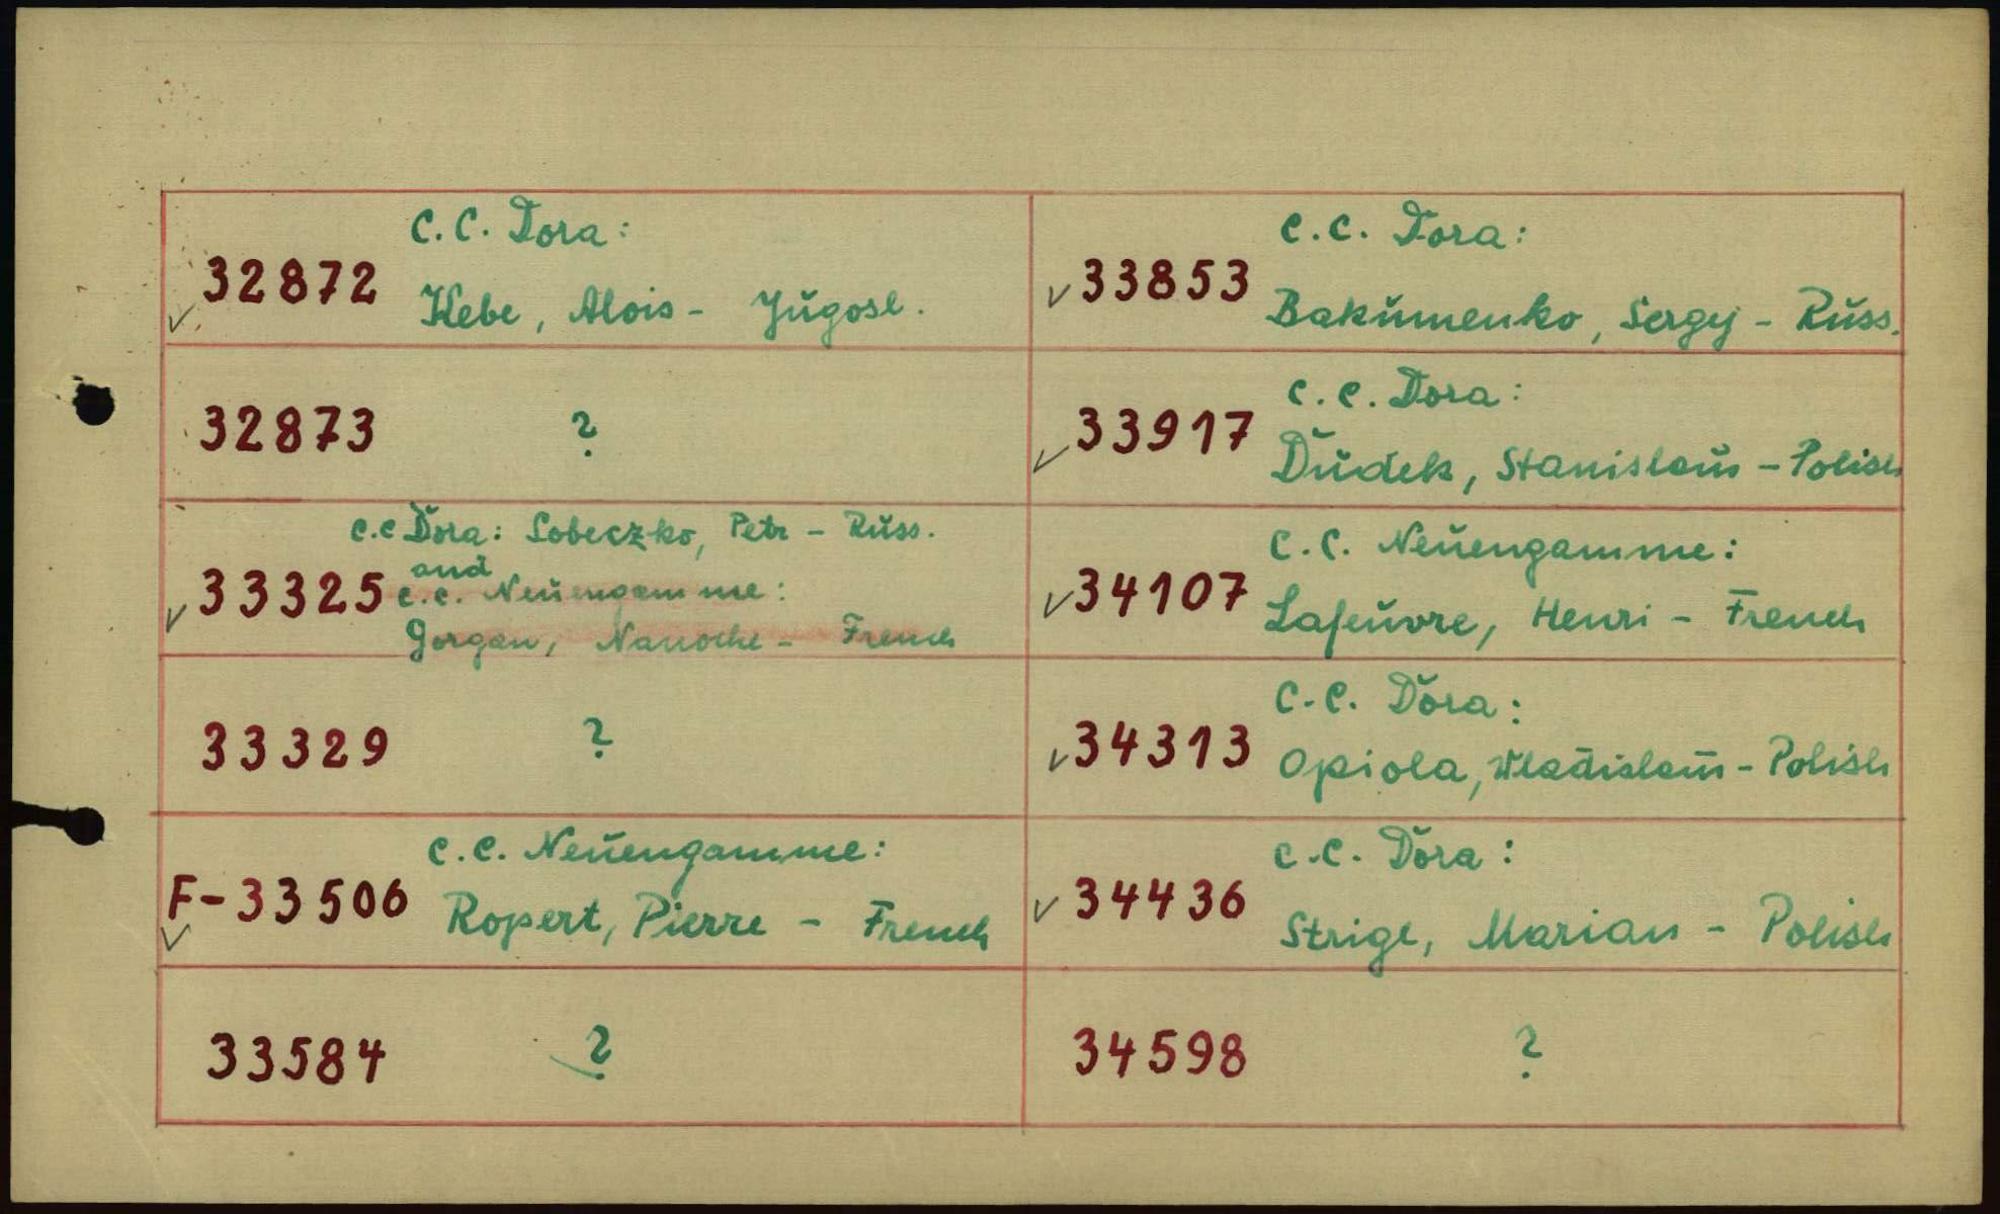 C.C. Dora:
✓ 32872 Kebe, Alois - Jugosl.
32873 ?
c.c Dora: Lobeczko, Petr - Russ.
and
✓ 33325 c.c. Neuengamme:
Gorgan, - French
33329 ?
c.c. Neuengamme:
F-33506 Ropert, Pierre - French
✓
33584 ?
c.c. Dora:
✓ 33853 Bakumenko, Sergej - Russ.
c.c. Dora:
✓ 33917 Dudek, Stanislaus - Polish
C.C. Neuengamme:
✓ 34107 Lafeuvre, Henri - French
C.C. Dora:
✓ 34313 Opiola, Wladislaus - Polish
c.c. Dora:
✓ 34436 Strige, Marian - Polish
34598 ?